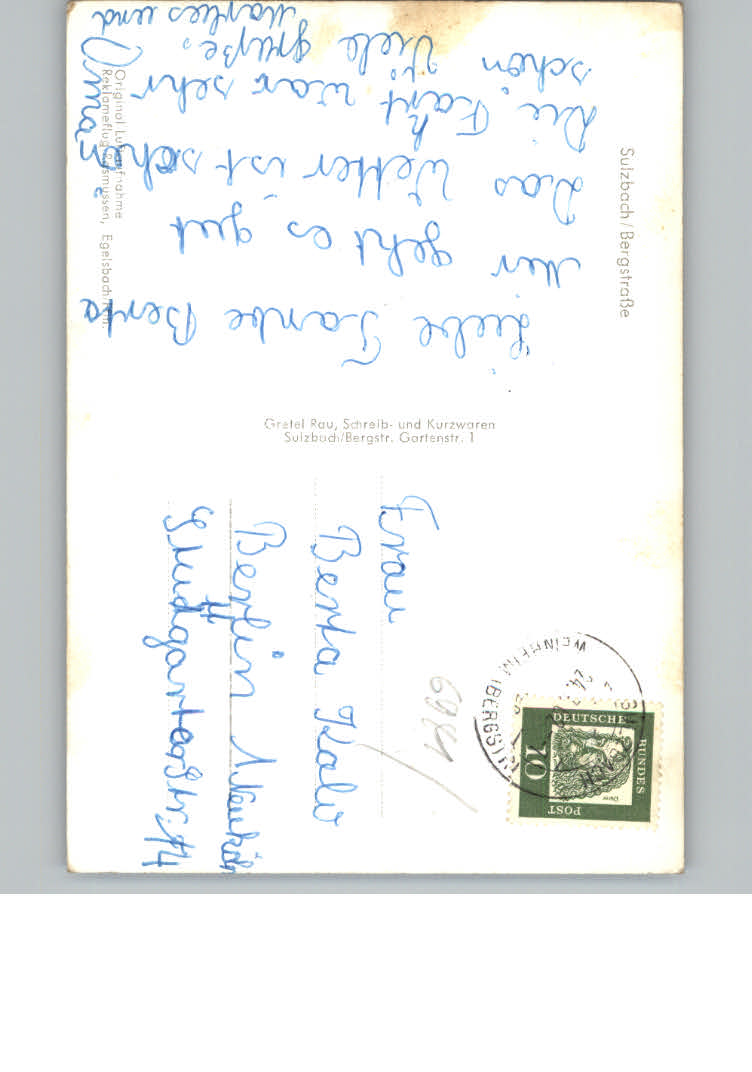 Sulzbach/Bergstraße
Liebe Tante Berta
Mir geht es gut
Das Wetter ist schön
Die Fahrt war sehr
schön Viele grüße.
Marlies und
Original Luftaufnahme
Reklameflug Rasmussen, Egelsbach/Ffm.
Gretel Rau, Schreib- und Kurzwaren
Sulzbach/Bergstr. Gartenstr. 1
Frau
Berta Kalw
Berlin 1 Neuköln
44
str. 14
6941
WEINHEIM (BERGSTR)
24.
DEUTSCHE
BUNDES
POST
10
Dürer